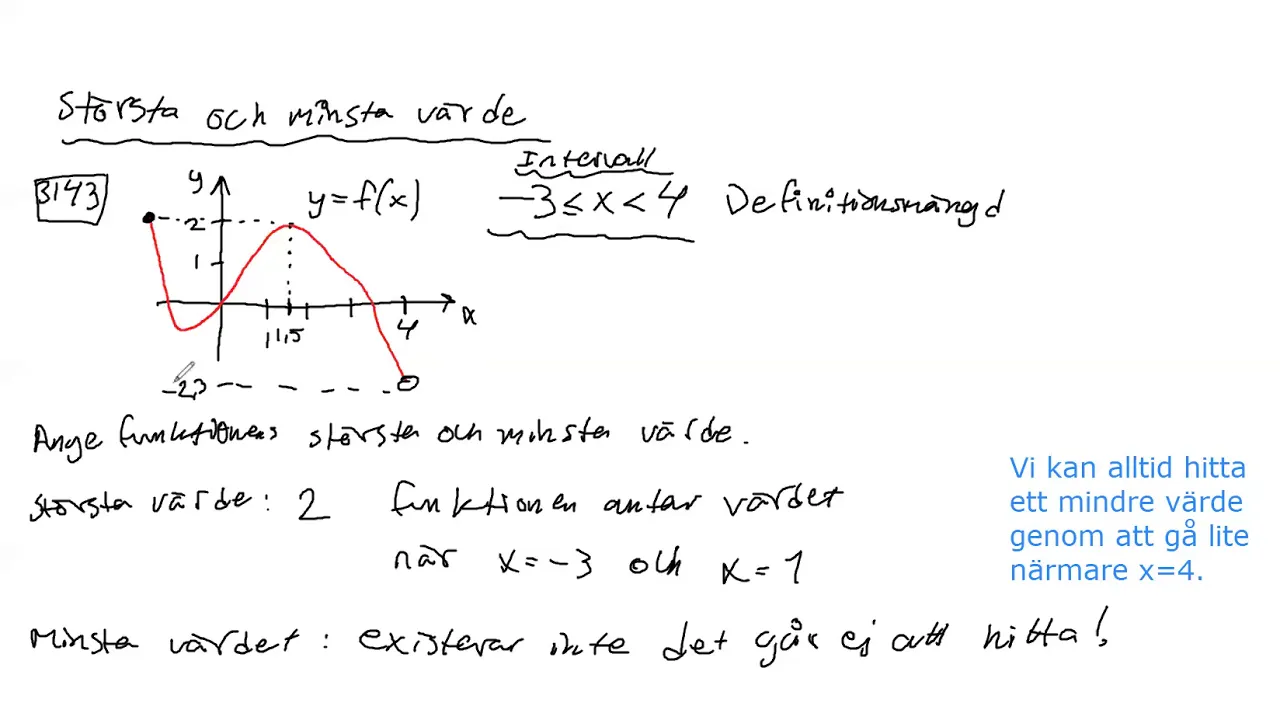 Största och minsta värde
3143
y
y=f(x)
Intervall
-3≤x<4 Definitionsmängd
2
1
x
1 1,5 4
-2,3
Ange funktionens största och minsta värde.
Största värde: 2 funktionen antar värdet
när x=-3 och x=1
Minsta värdet: existerar inte det går ej att hitta!
Vi kan alltid hitta
ett mindre värde
genom att gå lite
närmare x=4.